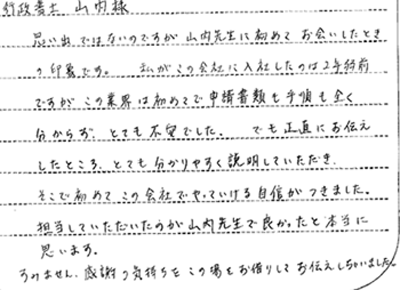 行政書士 山内様
思い出ではないのですが山内先生に初めてお会いしたとき
の印象です。 私がこの会社に入社したのは2年程前
ですがこの業界は初めてで申請書類も手順も全く
分からず、とても不安でした。 でも正直にお伝え
したところ、とても分かりやすく説明していただき、
そこで初めてこの会社でやっていける自信がつきました。
担当していただいたのが山内先生で良かったと本当に
思います。
すみません、感謝の気持ちをこの場をお借りしてお伝えしちゃいました。